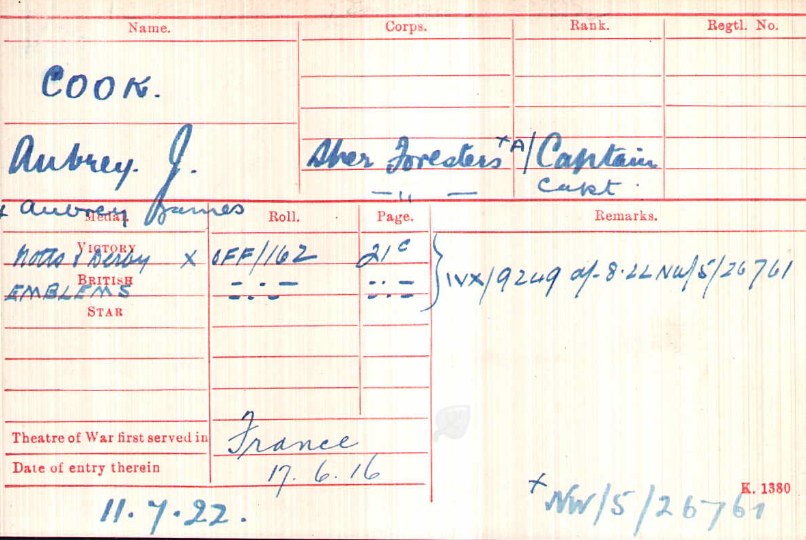 Name. Corps. Rank. Regtl. No.
COOK.
Aubrey. J. Sher Foresters x A/Captain
— " — Capt.
x Aubrey James
Medal. Roll. Page. Remarks.
VICTORY
Notts & Derby x OFF/162 21c IVX/9249 of- 8.22 NW/5/26761
BRITISH
EMBLEMS -- : -- -- : --
STAR
Theatre of War first served in France
Date of entry therein 17. 6. 16
K. 1380
x NW/5/26761
11.7.22.